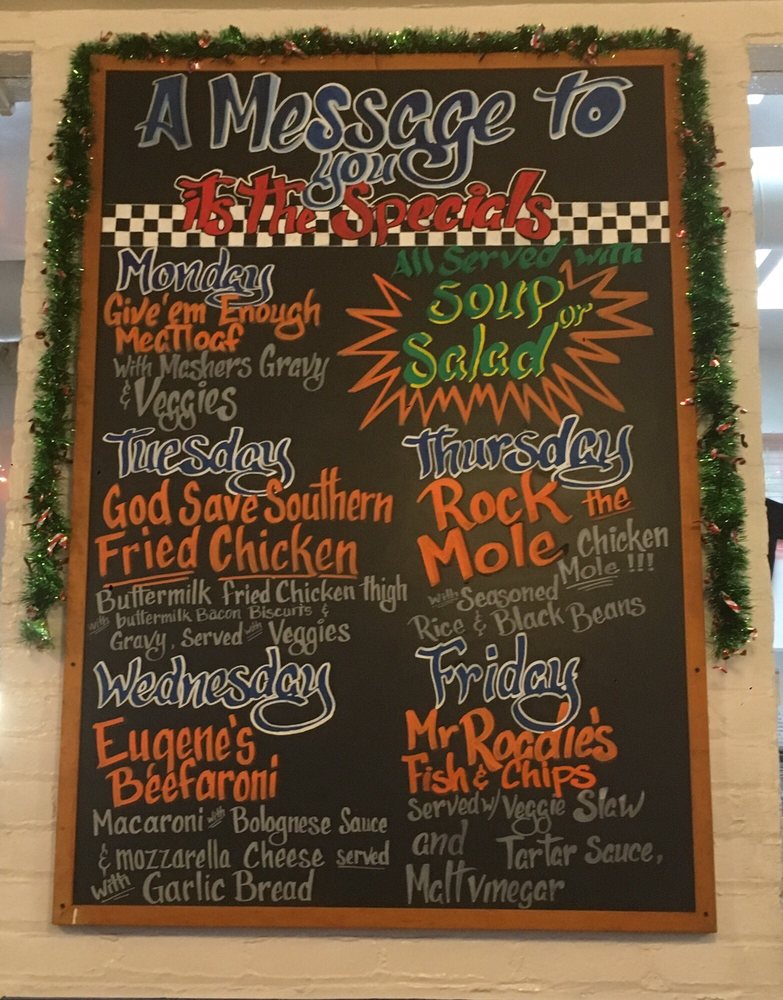 A Message to
you
it's the Specials
Monday
Give'em Enough
Meatloaf
With Mashers Gravy
& Veggies
All Served with
Soup or
Salad
Tuesday
God Save Southern
Fried Chicken
Buttermilk fried Chicken thigh
with buttermilk Bacon Biscuits &
Gravy, Served with Veggies
Wednesday
Eugene's
Beefaroni
Macaroni with Bolognese Sauce
& mozzarella Cheese served
with Garlic Bread
Thursday
Rock the
Mole Chicken
Mole !!!
with Seasoned
Rice & Black Beans
Friday
Mr Roadie's
Fish & Chips
Served w/ Veggie Slaw
and Tartar Sauce,
Malt vinegar